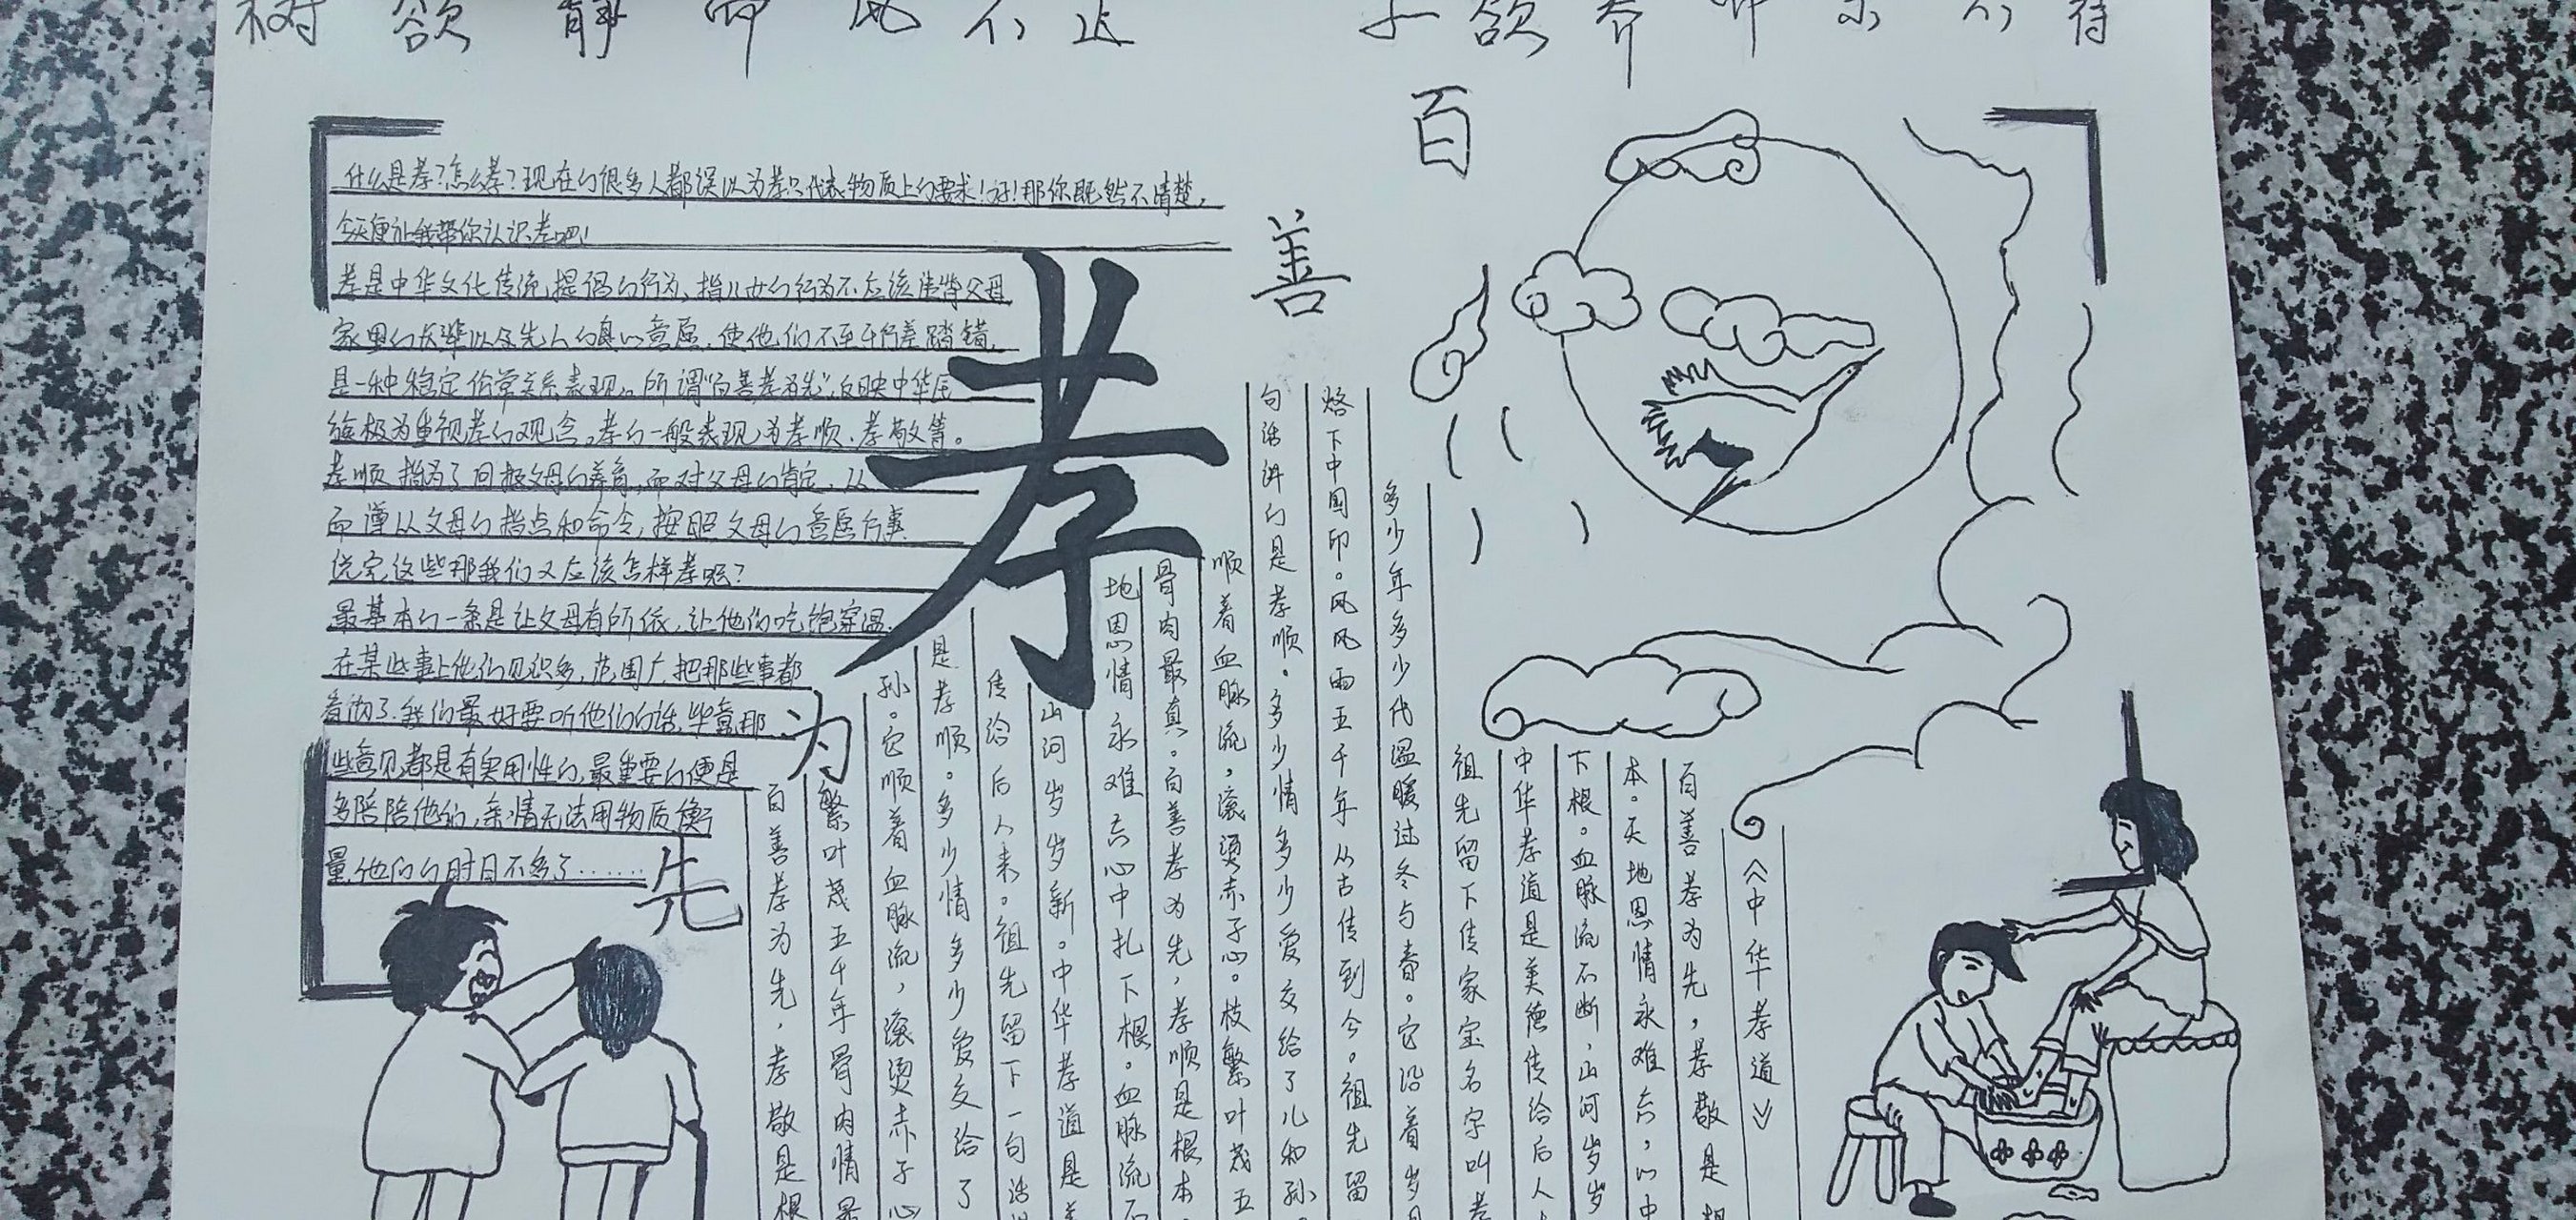 树欲静而风不止 子欲养而亲不待
百善孝为先
什么是孝?怎么孝?现在的很多人都误以为孝只代表物质上的要求!好!那你既然不清楚,
今天便让我带你认识孝吧!
孝是中华文化传统提倡的行为,指儿女的行为不应该违背父母
家里的长辈以及先人的真心意愿,使他们不至于行差踏错,
是一种稳定伦常关系表现。所谓“百善孝为先”,反映中华民
族极为重视孝的观念。孝的一般表现为孝顺、孝敬等。
孝顺指为了回报父母的养育,而对父母的肯定,从
而遵从父母的指点和命令,按照父母的意愿行事
说完这些那我们又应该怎样孝呢?
最基本的一条是让父母有所依,让他们吃饱穿温
在某些事上他们见识多,范围广把那些事都
看淡了.我们最好要听他们的话,毕竟那
些意见都是有实用性的,最重要的便是
多陪陪他们,亲情无法用物质衡
量他们的时日不多了......
《中华孝道》
百善孝为先,孝敬是根
本。天地恩情永难忘,心中
下根。血脉流不断,山河岁岁
中华孝道是美德传给后人
祖先留下传家宝名字叫孝
多少年多少代温暖过冬与春。它沿着岁月
烙下中国印。风风雨雨五千年从古传到今。祖先留
句话讲的是孝顺。多少情多少爱交给了儿和孙
顺着血脉流,滚烫赤子心。枝繁叶茂五
骨肉最真。百善孝为先,孝顺是根本。
地恩情永难忘心中扎下根。血脉流不
山河岁岁新。中华孝道是美
传给后人来。祖先留下一句话讲
是孝顺。多少情多少爱交给了
孙。它顺着血脉流,滚烫赤子心
繁叶茂五千年骨肉情最
百善孝为先,孝敬是根